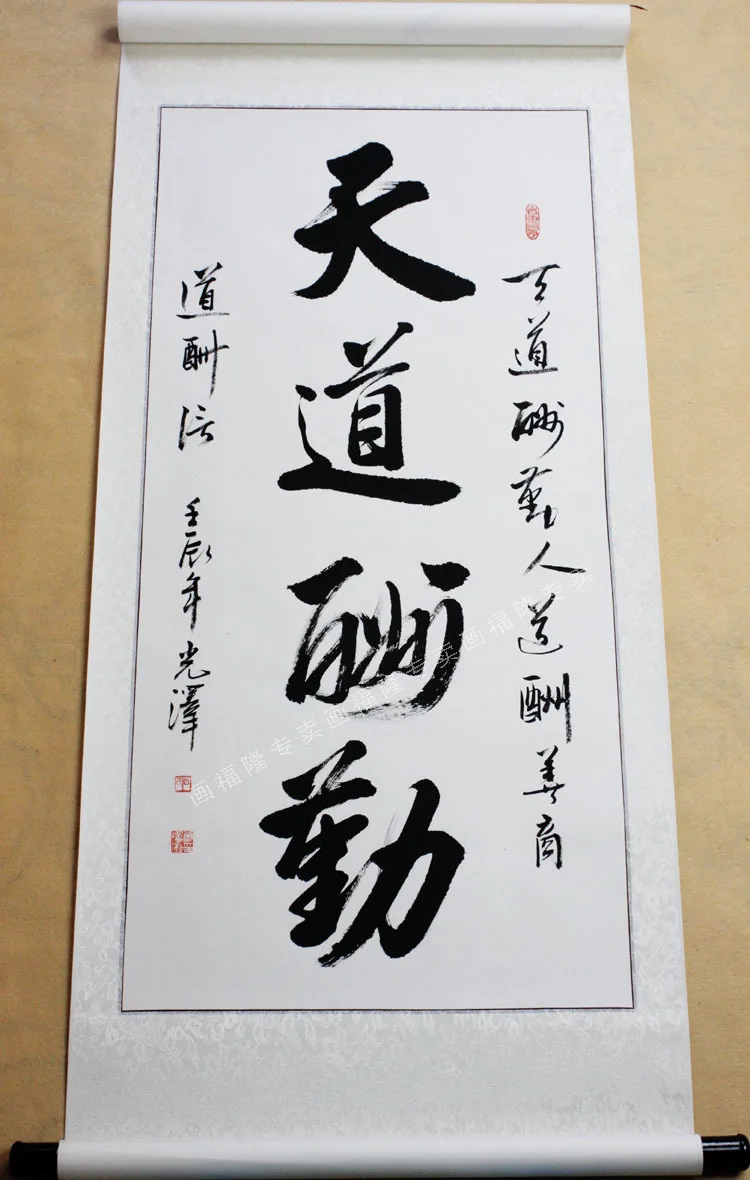 天道酬勤人道酬善商
天道酬勤
道酬信 壬辰年 光澤
画福隆专卖画福隆专卖画福隆专卖